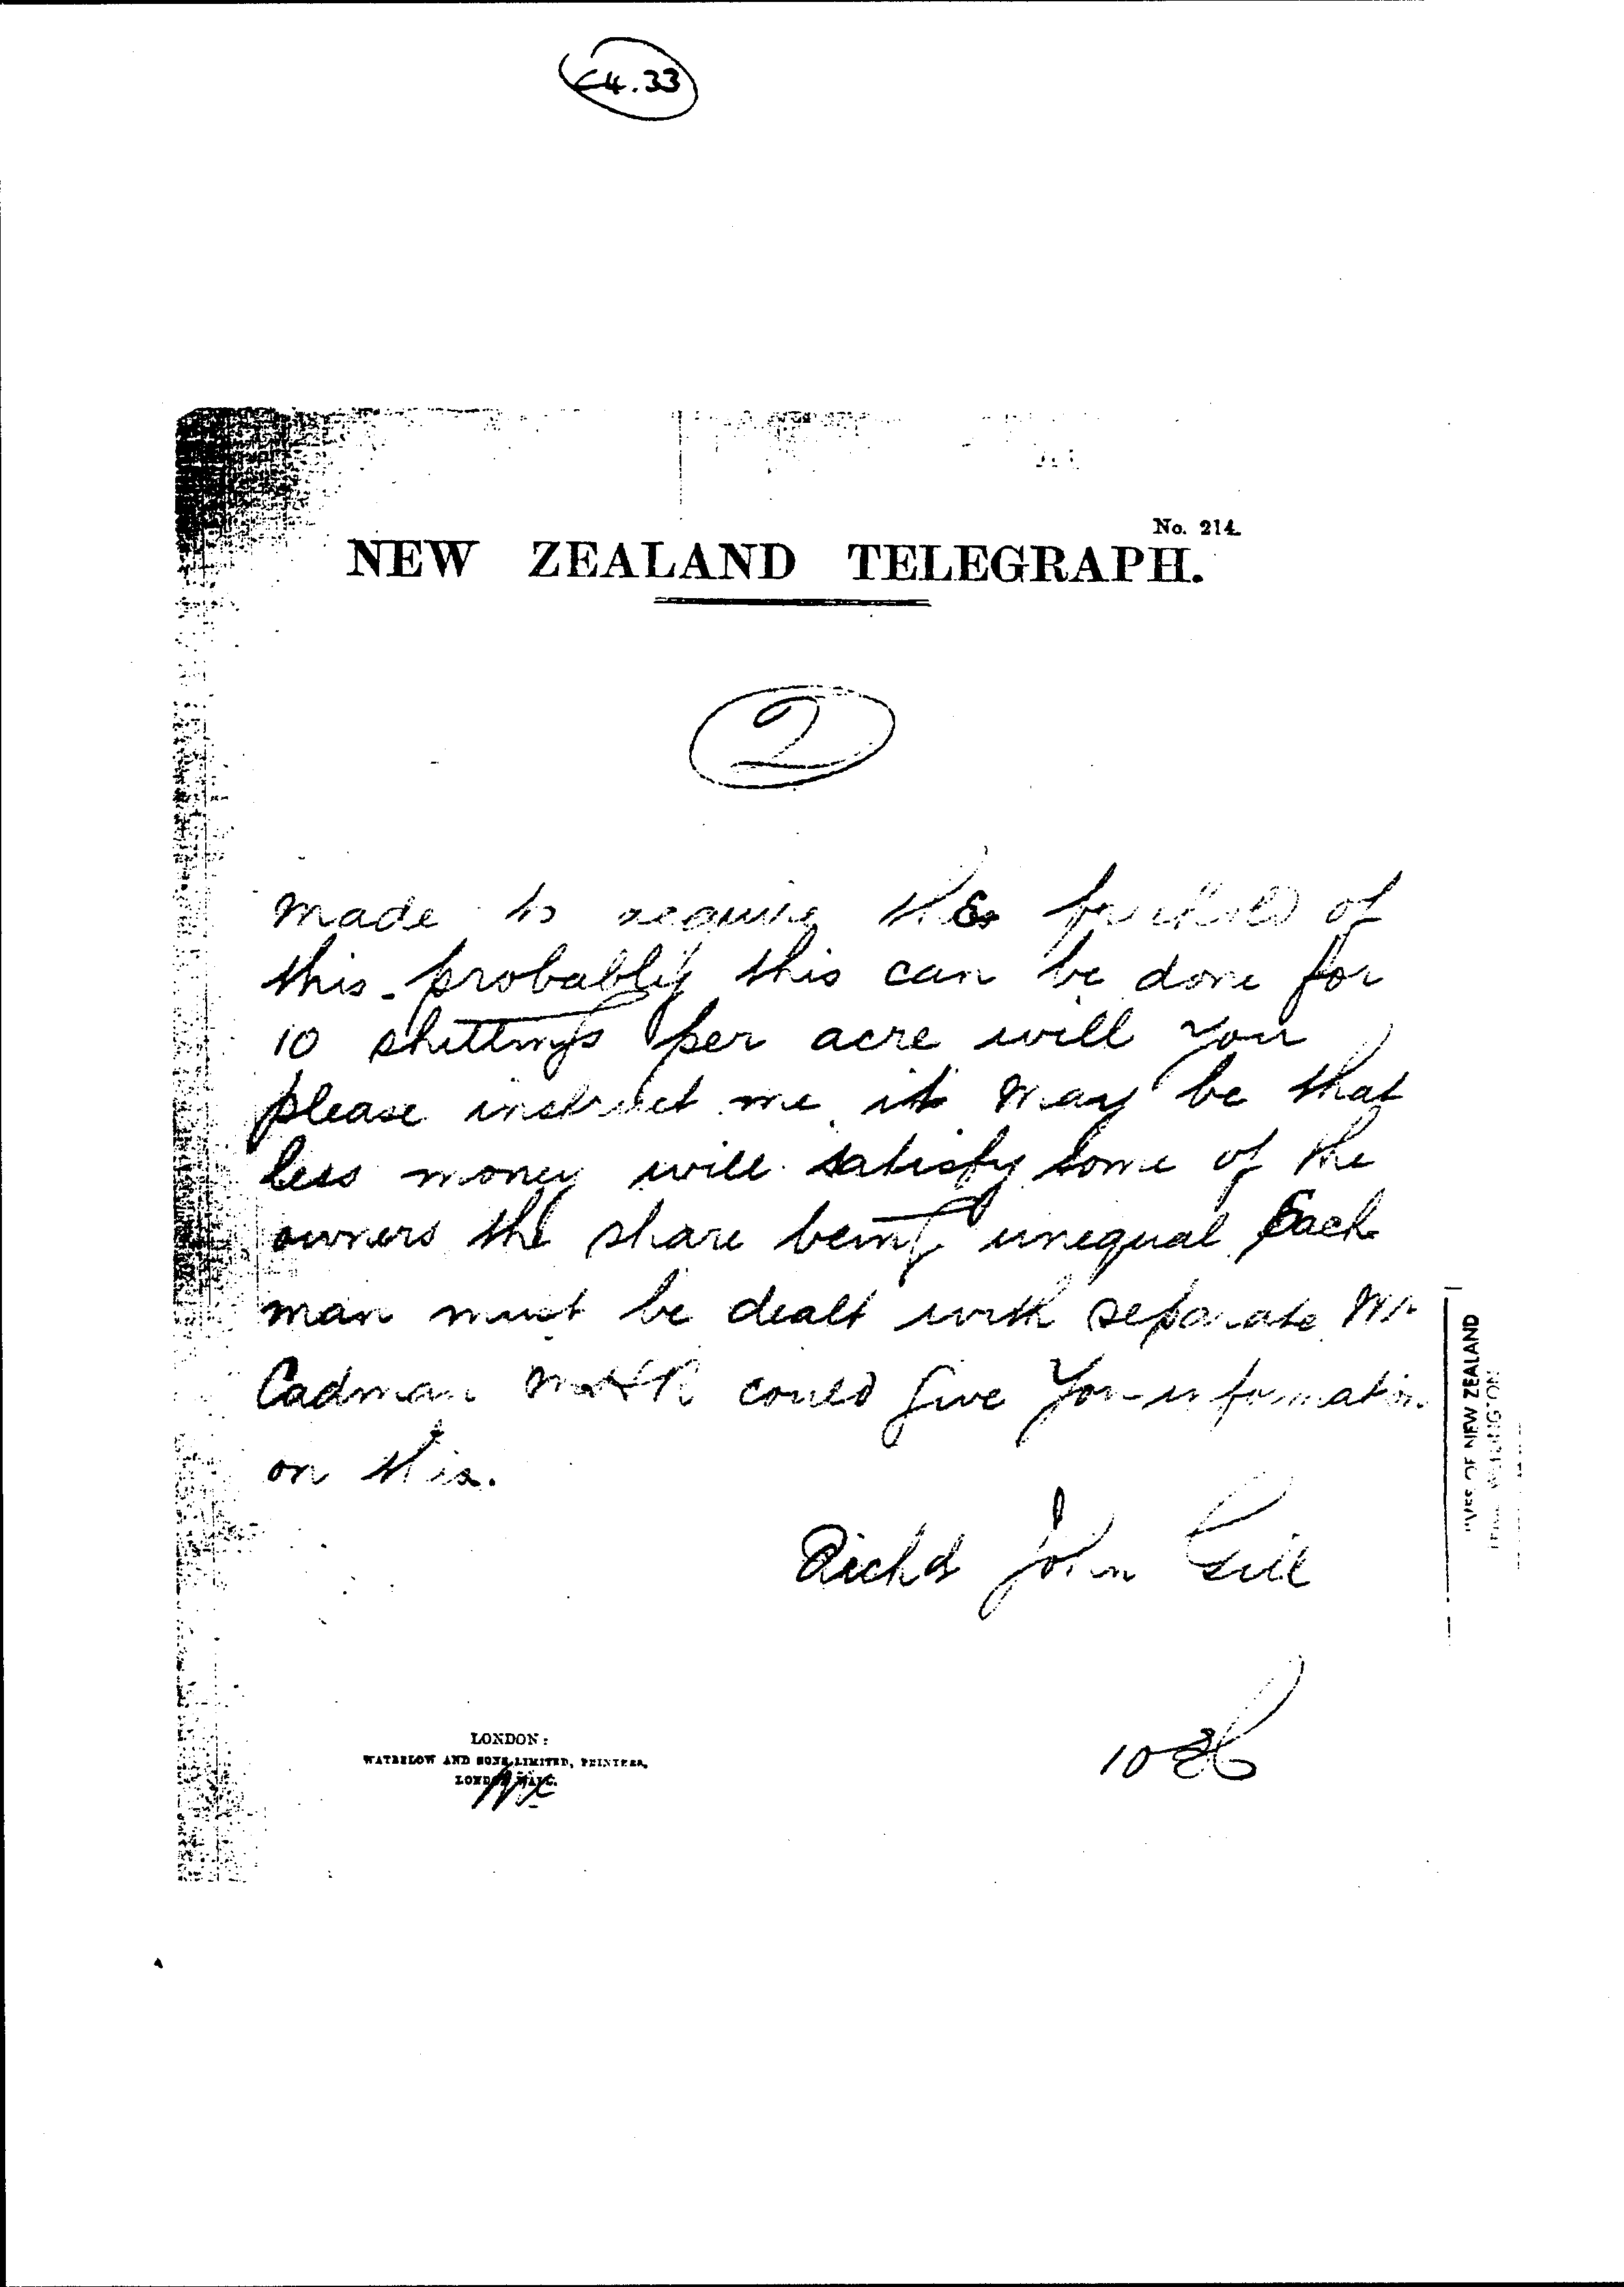 C4.33
No. 214.
NEW ZEALAND TELEGRAPH.
2
made to acquire the freehold of
this - probably this can be done for
10 shillings per acre will you
please instruct me it may be that
less money will satisfy some of the
owners the share being unequal Each
man must be dealt with separate Mr
Cadman MHR could give you information
on this.
Richd John Gill
LONDON:
WATERLOW AND SONS LIMITED, PRINTERS,
LONDON WALL.
OF NEW ZEALAND